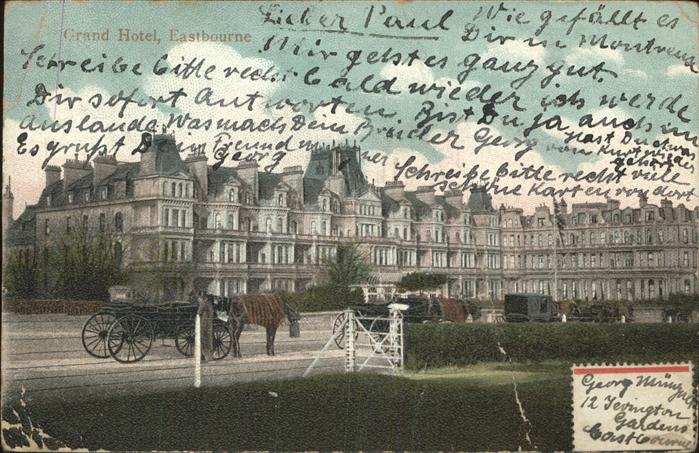 Grand Hotel, Eastbourne
Lieber Paul Wie gefällt es
Dir in Montreux
Mir geht es ganz gut.
Schreibe bitte recht bald wieder ich werde
Dir sofort Antworten. Bist Du ja auch im
Auslande. Was mach Dein Bruder Georg von Kurt
hast Du etwas
gehört
Es grüßt Dein Freund
Georg
Schreibe bitte recht viele
schöne Karten von dort
Georg
12 Jevington
Gardens
Eastbourne